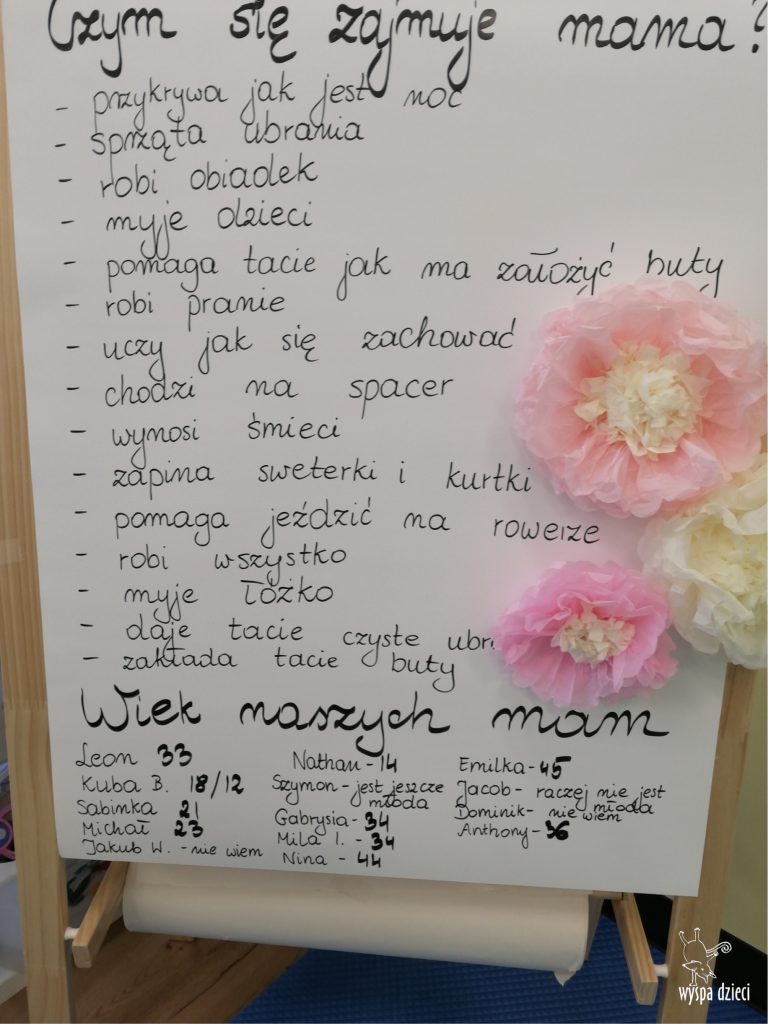 Czym się zajmuje mama?
- przykrywa jak jest noc
- sprząta ubrania
- robi obiadek
- myje dzieci
- pomaga tacie jak ma założyć buty
- robi pranie
- uczy jak się zachować
- chodzi na spacer
- wynosi śmieci
- zapina sweterki i kurtki
- pomaga jeździć na rowerze
- robi wszystko
- myje łóżko
- daje tacie czyste
- zakłada tacie buty
Wiek naszych mam
Leon 33
Kuba B. 18/12
Sabinka 21
Michał 23
Jakub W. - nie wiem
Nathan - 14
Szymon - jest jeszcze
młoda
Gabrysia - 34
Mila I. - 34
Nina - 44
Emilka - 45
Jacob - raczej nie jest
młoda
Dominik - nie wiem
Anthony - 36
wyspa dzieci